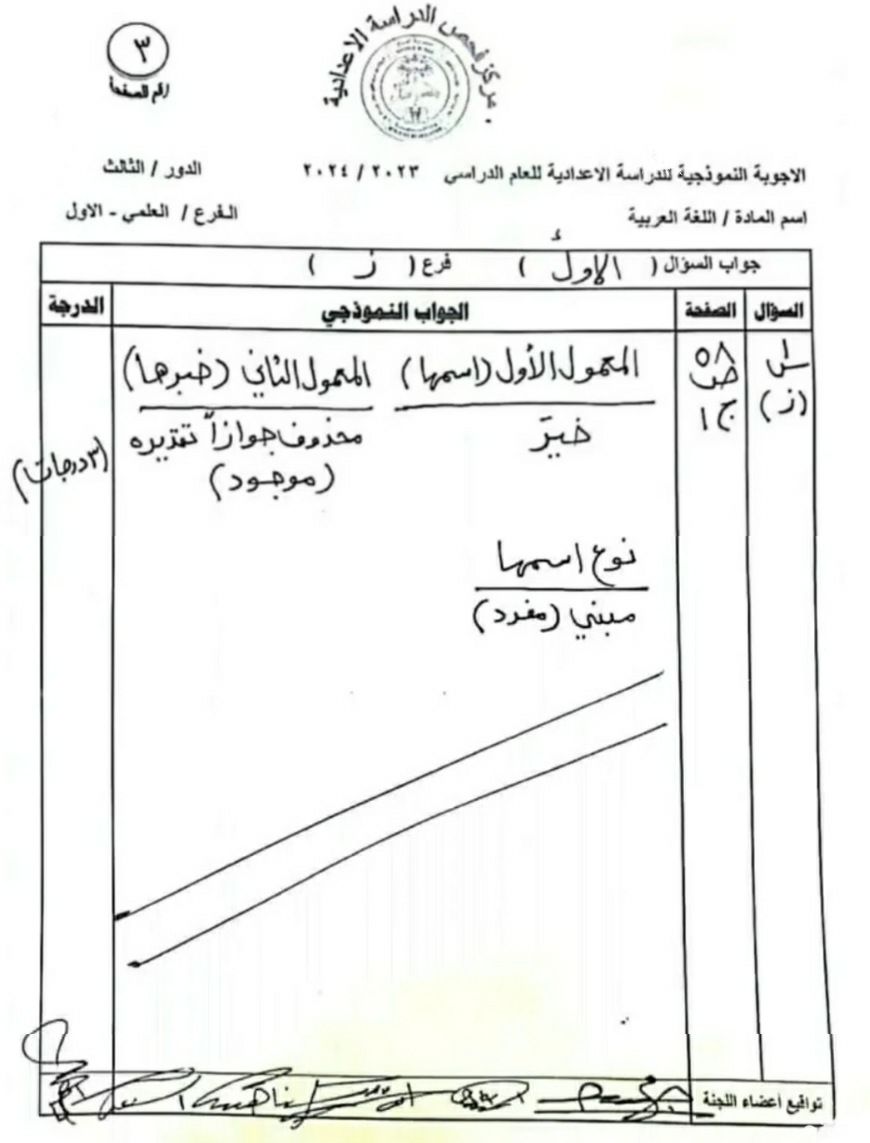 مركز فحص الدراسة الاعدادية
٣
رقم الصفحة
الاجوبة النموذجية للدراسة الاعدادية للعام الدراسي ٢٠٢٣ / ٢٠٢٤
الدور / الثالث
اسم المادة / اللغة العربية
الفرع / العلمي - الاول
جواب السؤال ( الاول ) فرع ( ز )
السؤال
الصفحة
الجواب النموذجي
الدرجة
س١
(ز)
ص ٥٨
ج ١
المعمول الأول (اسمها)
المعمول الثاني (خبرها)
خيرَ
محذوف جوازاً تقديره
(موجود)
(٣ درجات)
نوع اسمها
مبني (مفرد)
تواقيع أعضاء اللجنة